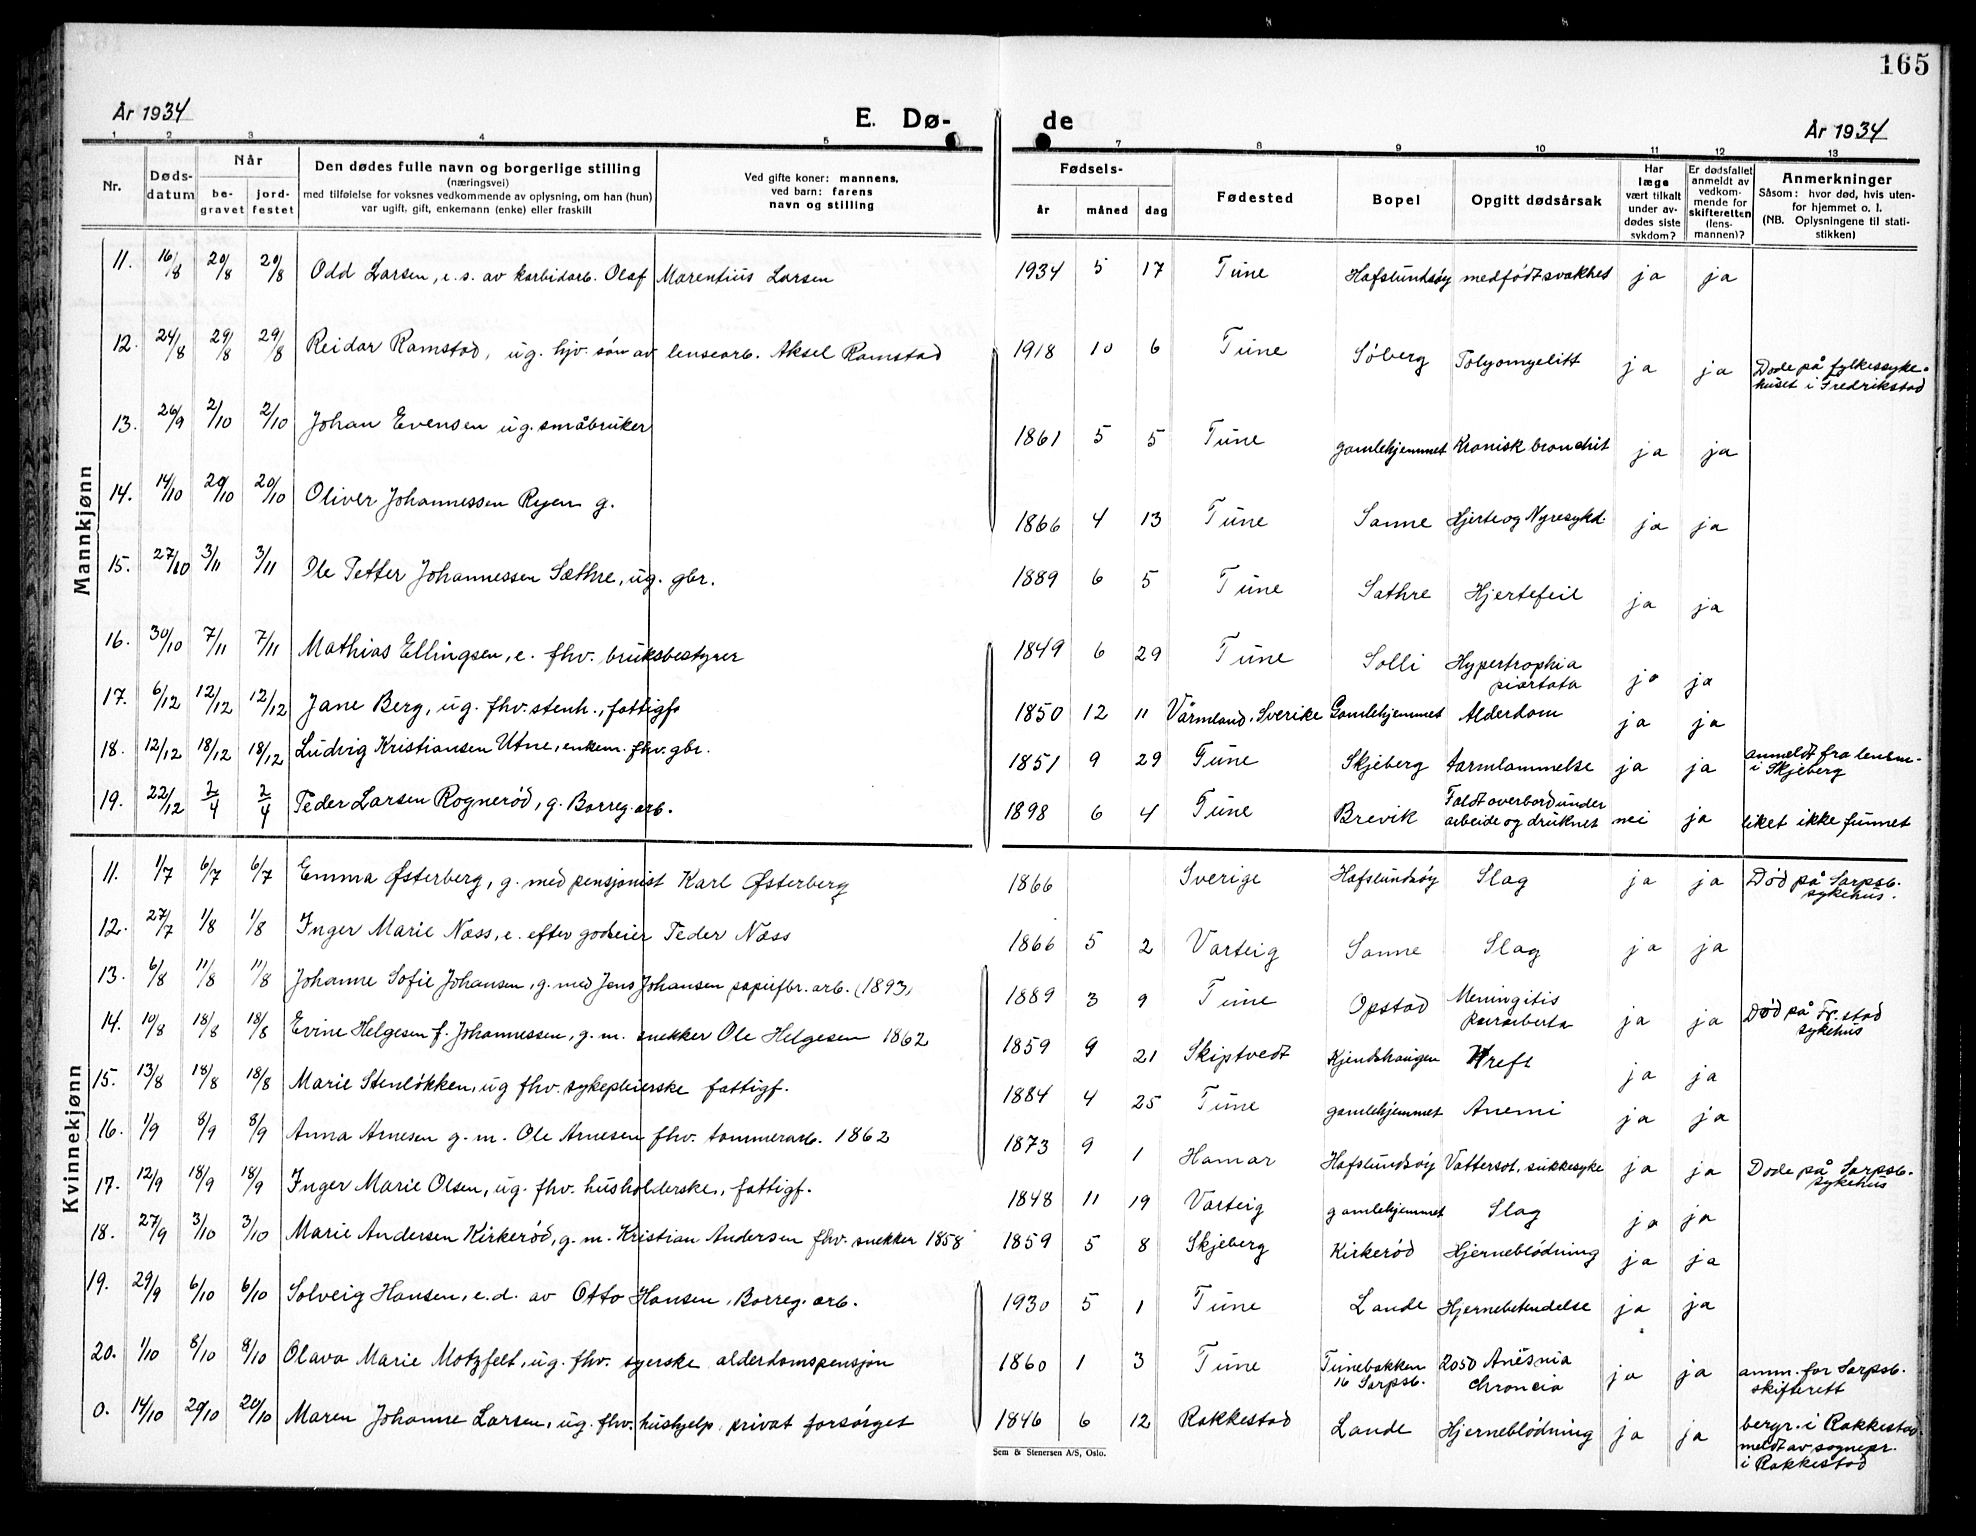 165
År 1934
E. Dø-
de
År 1934
1 2 3 4 5 7 8 9 10 11 12 13
Nr.
Døds-
datum
Når
be-
gravet
jord-
festet
Den dødes fulle navn og borgerlige stilling
(næringsvei)
med tilføielse for voksnes vedkommende av oplysning, om han (hun)
var ugift, gift, enkemann (enke) eller fraskilt
Ved gifte koner: mannens,
ved barn: farens
navn og stilling
Fødsels-
år måned dag
Fødested
Bopel
Opgitt dødsårsak
Har
læge
vært tilkalt
under av-
dødes siste
sykdom?
Er dødsfallet
anmeldt av
vedkom-
mende for
skifteretten
(lens-
mannen)?
Anmerkninger
Såsom: hvor død, hvis uten-
for hjemmet o. l.
(NB. Oplysningene til stati-
stikken)
Mannkjønn
11. 16/8 20/8 20/8 Odd Larsen, e. s. av karbidarb. Olaf Marentius Larsen 1934 5 17 Tune Hafslundsöy medfödt svakhet ja ja
12. 24/8 29/8 29/8 Reidar Ramstad, ug. hjv. sön av lensearb. Aksel Ramstad 1918 10 6 Tune Söberg Polyomyelitt ja ja Döde på fylkessyke-
huset i Fredrikstad
13. 26/9 2/10 2/10 Johan Evensen ug. småbruker 1861 5 5 Tune gamlehjemmet Kronisk bronchit ja ja
14. 14/10 20/10 20/10 Oliver Johannessen Ryen g. 1866 4 13 Tune Sanne Hjerte og Nyresykd. ja ja
15. 27/10 3/11 3/11 Ole Petter Johannessen Sæthre, ug. gbr. 1889 6 5 Tune Sæthre Hjertefeil ja ja
16. 30/10 7/11 7/11 Mathias Ellingsen, e. fhv. bruksbestyrer 1849 6 29 Tune Solli Hypertrophia
ja ja
17. 6/12 12/12 12/12 Jane Berg, ug. fhv. stenh., fattigfs 1850 12 11 Värmland, Sverike Gamlehjemmet Alderdom ja ja
18. 12/12 18/12 18/12 Ludvig Kristiansen Utne, enkem. fhv. gbr. 1851 9 29 Tune Skjeberg tarmlammelse ja ja anmeldt fra lensm-
i Skjeberg
19. 22/12 2/4 2/4 Peder Larsen Rognerød, g. Borreg. arb. 1898 6 4 Tune Brevik Faldt overbord under
arbeide og druknet nei ja liket ikke funnet
Kvinnekjønn
11. 1/7 6/7 6/7 Emma Østerberg, g. med pensjonist Karl Østerberg 1866 Sverige Hafslundsöy Slag ja ja Död på Sarpsb.
sykehus.
12. 27/7 1/8 1/8 Inger Marie Næss, e. efter godseier Peder Næss 1866 5 2 Varteig Sanne Slag ja ja
13. 6/8 11/8 11/8 Johanne Sofie Johansen, g. med Jens Johansen papirfbr. arb. (1893) 1889 3 9 Tune Opstad Meningitis
ja ja Död på Fr.stad
sykehus
14. 10/8 18/8 18/8 Evine Helgesen f. Johannessen, g. m. snekker Ole Helgesen 1862 1859 9 21 Skiptvedt Kjendshaugen Kreft ja ja
15. 13/8 18/8 18/8 Marie Stenlökken, ug fhv. sykepleierske fattigf. 1884 4 25 Tune gamlehjemmet Anemi ja ja
16. 1/9 8/9 8/9 Anna Arnesen g. m. Ole Arnesen fhv. tömmerarb. 1862 1873 9 1 Hamar Hafslundsöy Vattersot, sukkesyke ja ja Döde på Sarpsb.
sykehus
17. 12/9 18/9 18/9 Inger Marie Olsen, ug. fhv. husholderske, fattigf. 1848 11 19 Varteig gamlehjemmet Slag ja ja
18. 27/9 3/10 3/10 Marie Andersen Kirkerød, g. m. Kristian Andersen fhv. snekker 1858 1859 5 8 Skjeberg Kirkerød Hjerneblödning ja ja
19. 29/9 6/10 6/10 Solveig Hansen, e. d. av Otto Hansen, Borreg. arb. 1930 5 1 Tune Lande Hjernebetendelse ja ja
20. 1/10 8/10 8/10 Olava Marie Motzfelt, ug. fhv. syerske alderdomspensjon 1860 1 3 Tune Tunebakken
16 Sarpsb.
ja ja anm. for Sarpsb.
skifterett
0. 14/10 20/10 20/10 Maren Johanne Larsen, ug. fhv. hushjelp privat forsörget 1846 6 12 Rakkestad Lande Hjerneblödning ja ja begr. i Rakkestad
meldt av sognepr.
i Rakkestad
Sem & Stenersen A/S, Oslo.